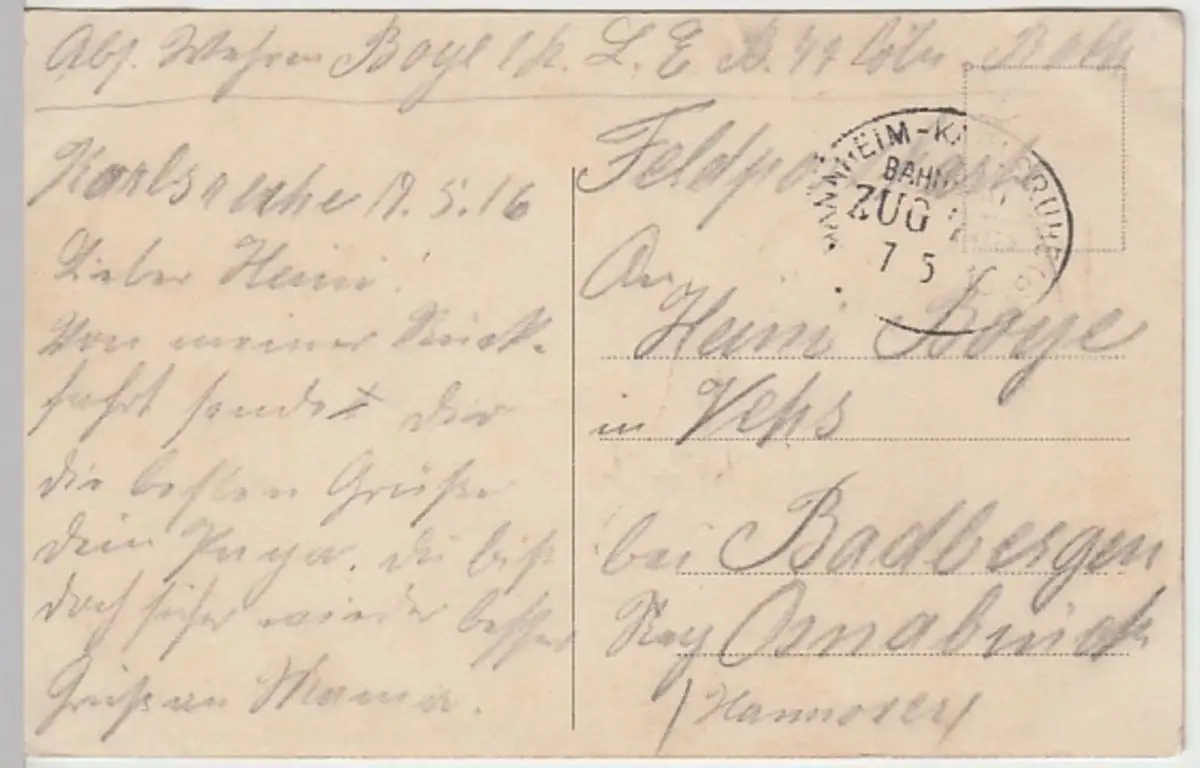 Abs. Wehrm Boye L. E. B. Cöln
Karlsruhe 17.5.16
Lieber Heini!
Von meiner Rück-
fahrt sendet dir
die besten Grüße
dein Papa. du bist
doch sicher wieder besser
Gruß an Mama.
Feldpostkarte
MANNHEIM-KARLSRUHE
BAHNPOST
ZUG
7 5
An
Heini Boye
in Vehs
bei Badbergen
Bez Osnabrück
(Hannover)